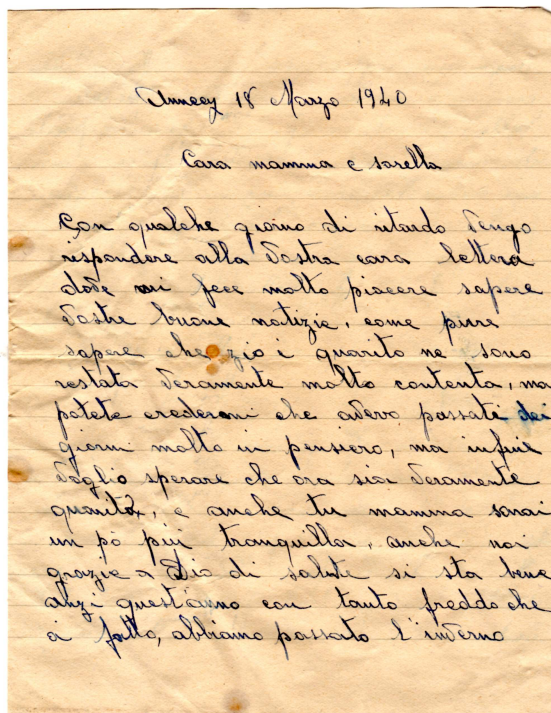 Annecy 18 Marzo 1940
Cara mamma e sorella
Con qualche giorno di ritardo vengo
rispondere alla vostra cara lettera
dove mi fece molto piacere sapere
vostre buone notizie, come pure
sapere che zio i guarito ne sono
restata veramente molto contenta, ma
potete credermi che avevo passati dei
giorni molto in pensiero, ma infine
voglio sperare che ora sia veramente
guarito, e anche tu mamma sarai
un pò più tranquilla, anche noi
grazie a Dio di salute si sta bene
anzi quest'anno con tanto freddo che
a fatto, abbiamo passato l'inverno